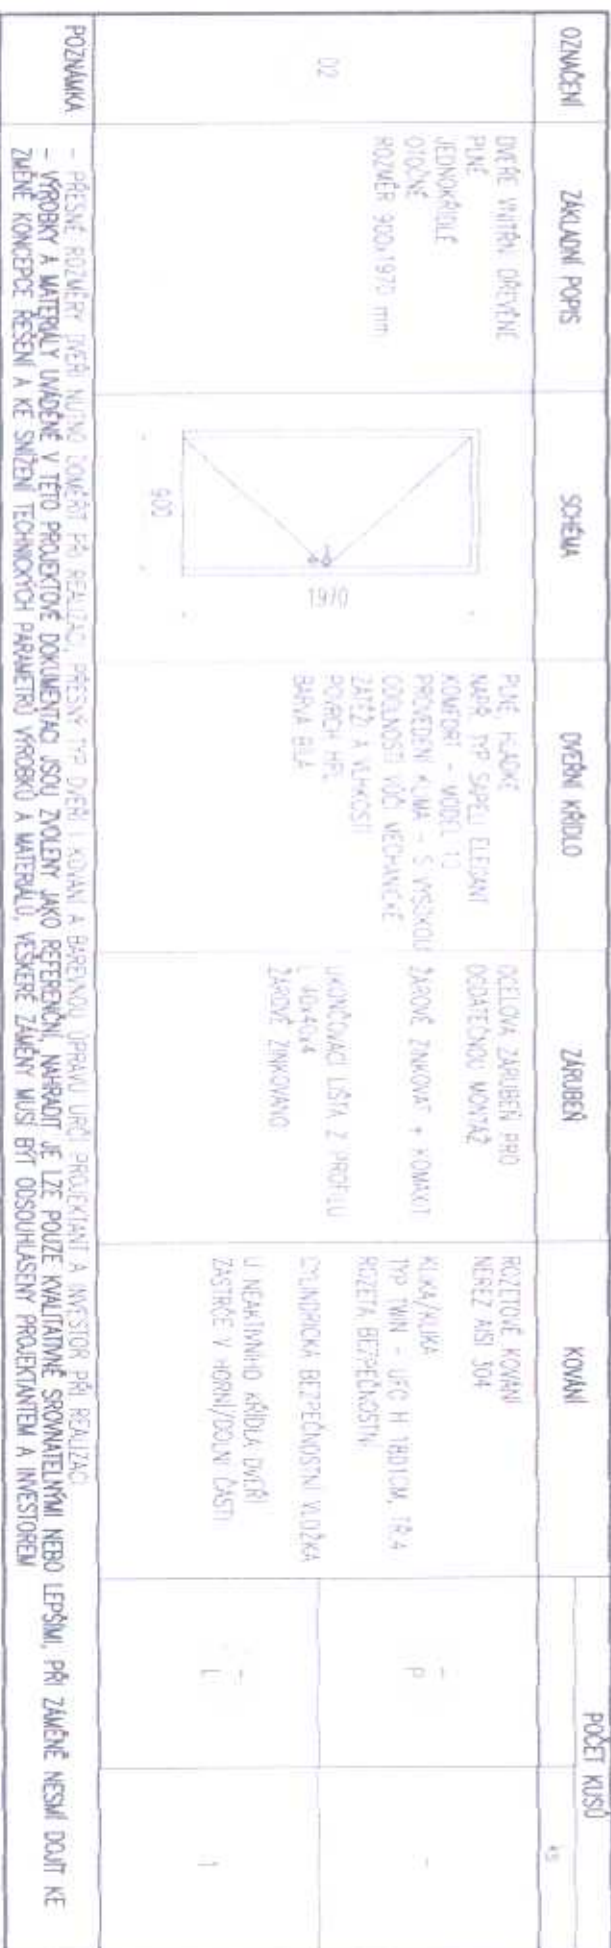 OZNAČENÍ
ZÁKLADNÍ POPIS
SCHÉMA
DVEŘNÍ KŘÍDLO
ZÁRUBEŇ
KOVÁNÍ
POČET KUSŮ
02
DVEŘE VNITŘNÍ DŘEVĚNÉ
PLNÉ
JEDNOKŘÍDLÉ
OTOČNÉ
ROZMĚR 900x1970 mm
1970
900
PLNÉ, HLADKÉ
NAPŘ. TYP SAPELI ELEGANT
KOMFORT - MODEL 10
PROVEDENÍ KLIMA - S VYSOKOU
ODOLNOSTÍ VŮČI MECHANICKÉ
ZÁTĚŽI A VLHKOSTI
POVRCH HPL
BARVA BÍLÁ
OCELOVÁ ZÁRUBEŇ PRO
DODATEČNOU MONTÁŽ
ŽÁROVĚ ZINKOVAT + KOMAXIT
UKONČOVACÍ LIŠTA Z PROFILU
L 40x40x4
ŽÁROVĚ ZINKOVÁNO
ROZETOVÉ KOVÁNÍ
NEREZ AISI 304
KLIKA/KLIKA
TYP TWIN -
ROZETA BEZPEČNOSTNÍ
CYLINDRICKÁ BEZPEČNOSTNÍ VLOŽKA
U NEAKTIVNÍHO KŘÍDLA DVEŘÍ
ZÁSTRČE V HORNÍ/DOLNÍ ČÁSTI
P
L
1
POZNÁMKA
- PŘESNÉ ROZMĚRY DVEŘÍ NUTNO DOMĚŘIT PŘI REALIZACI, PŘESNÝ TYP DVEŘÍ I KOVÁNÍ A BAREVNOU ÚPRAVU URČÍ PROJEKTANT A INVESTOR PŘI REALIZACI
- VÝROBKY A MATERIÁLY UVÁDĚNÉ V TÉTO PROJEKTOVÉ DOKUMENTACI JSOU ZVOLENY JAKO REFERENČNÍ, NAHRADIT JE LZE POUZE KVALITATIVNĚ SROVNATELNÝMI NEBO LEPŠÍMI, PŘI ZÁMĚNĚ NESMÍ DOJÍT KE
ZMĚNĚ KONCEPCE ŘEŠENÍ A KE SNÍŽENÍ TECHNICKÝCH PARAMETRŮ VÝROBKŮ A MATERIÁLŮ, VEŠKERÉ ZÁMĚNY MUSÍ BÝT ODSOUHLASENY PROJEKTANTEM A INVESTOREM